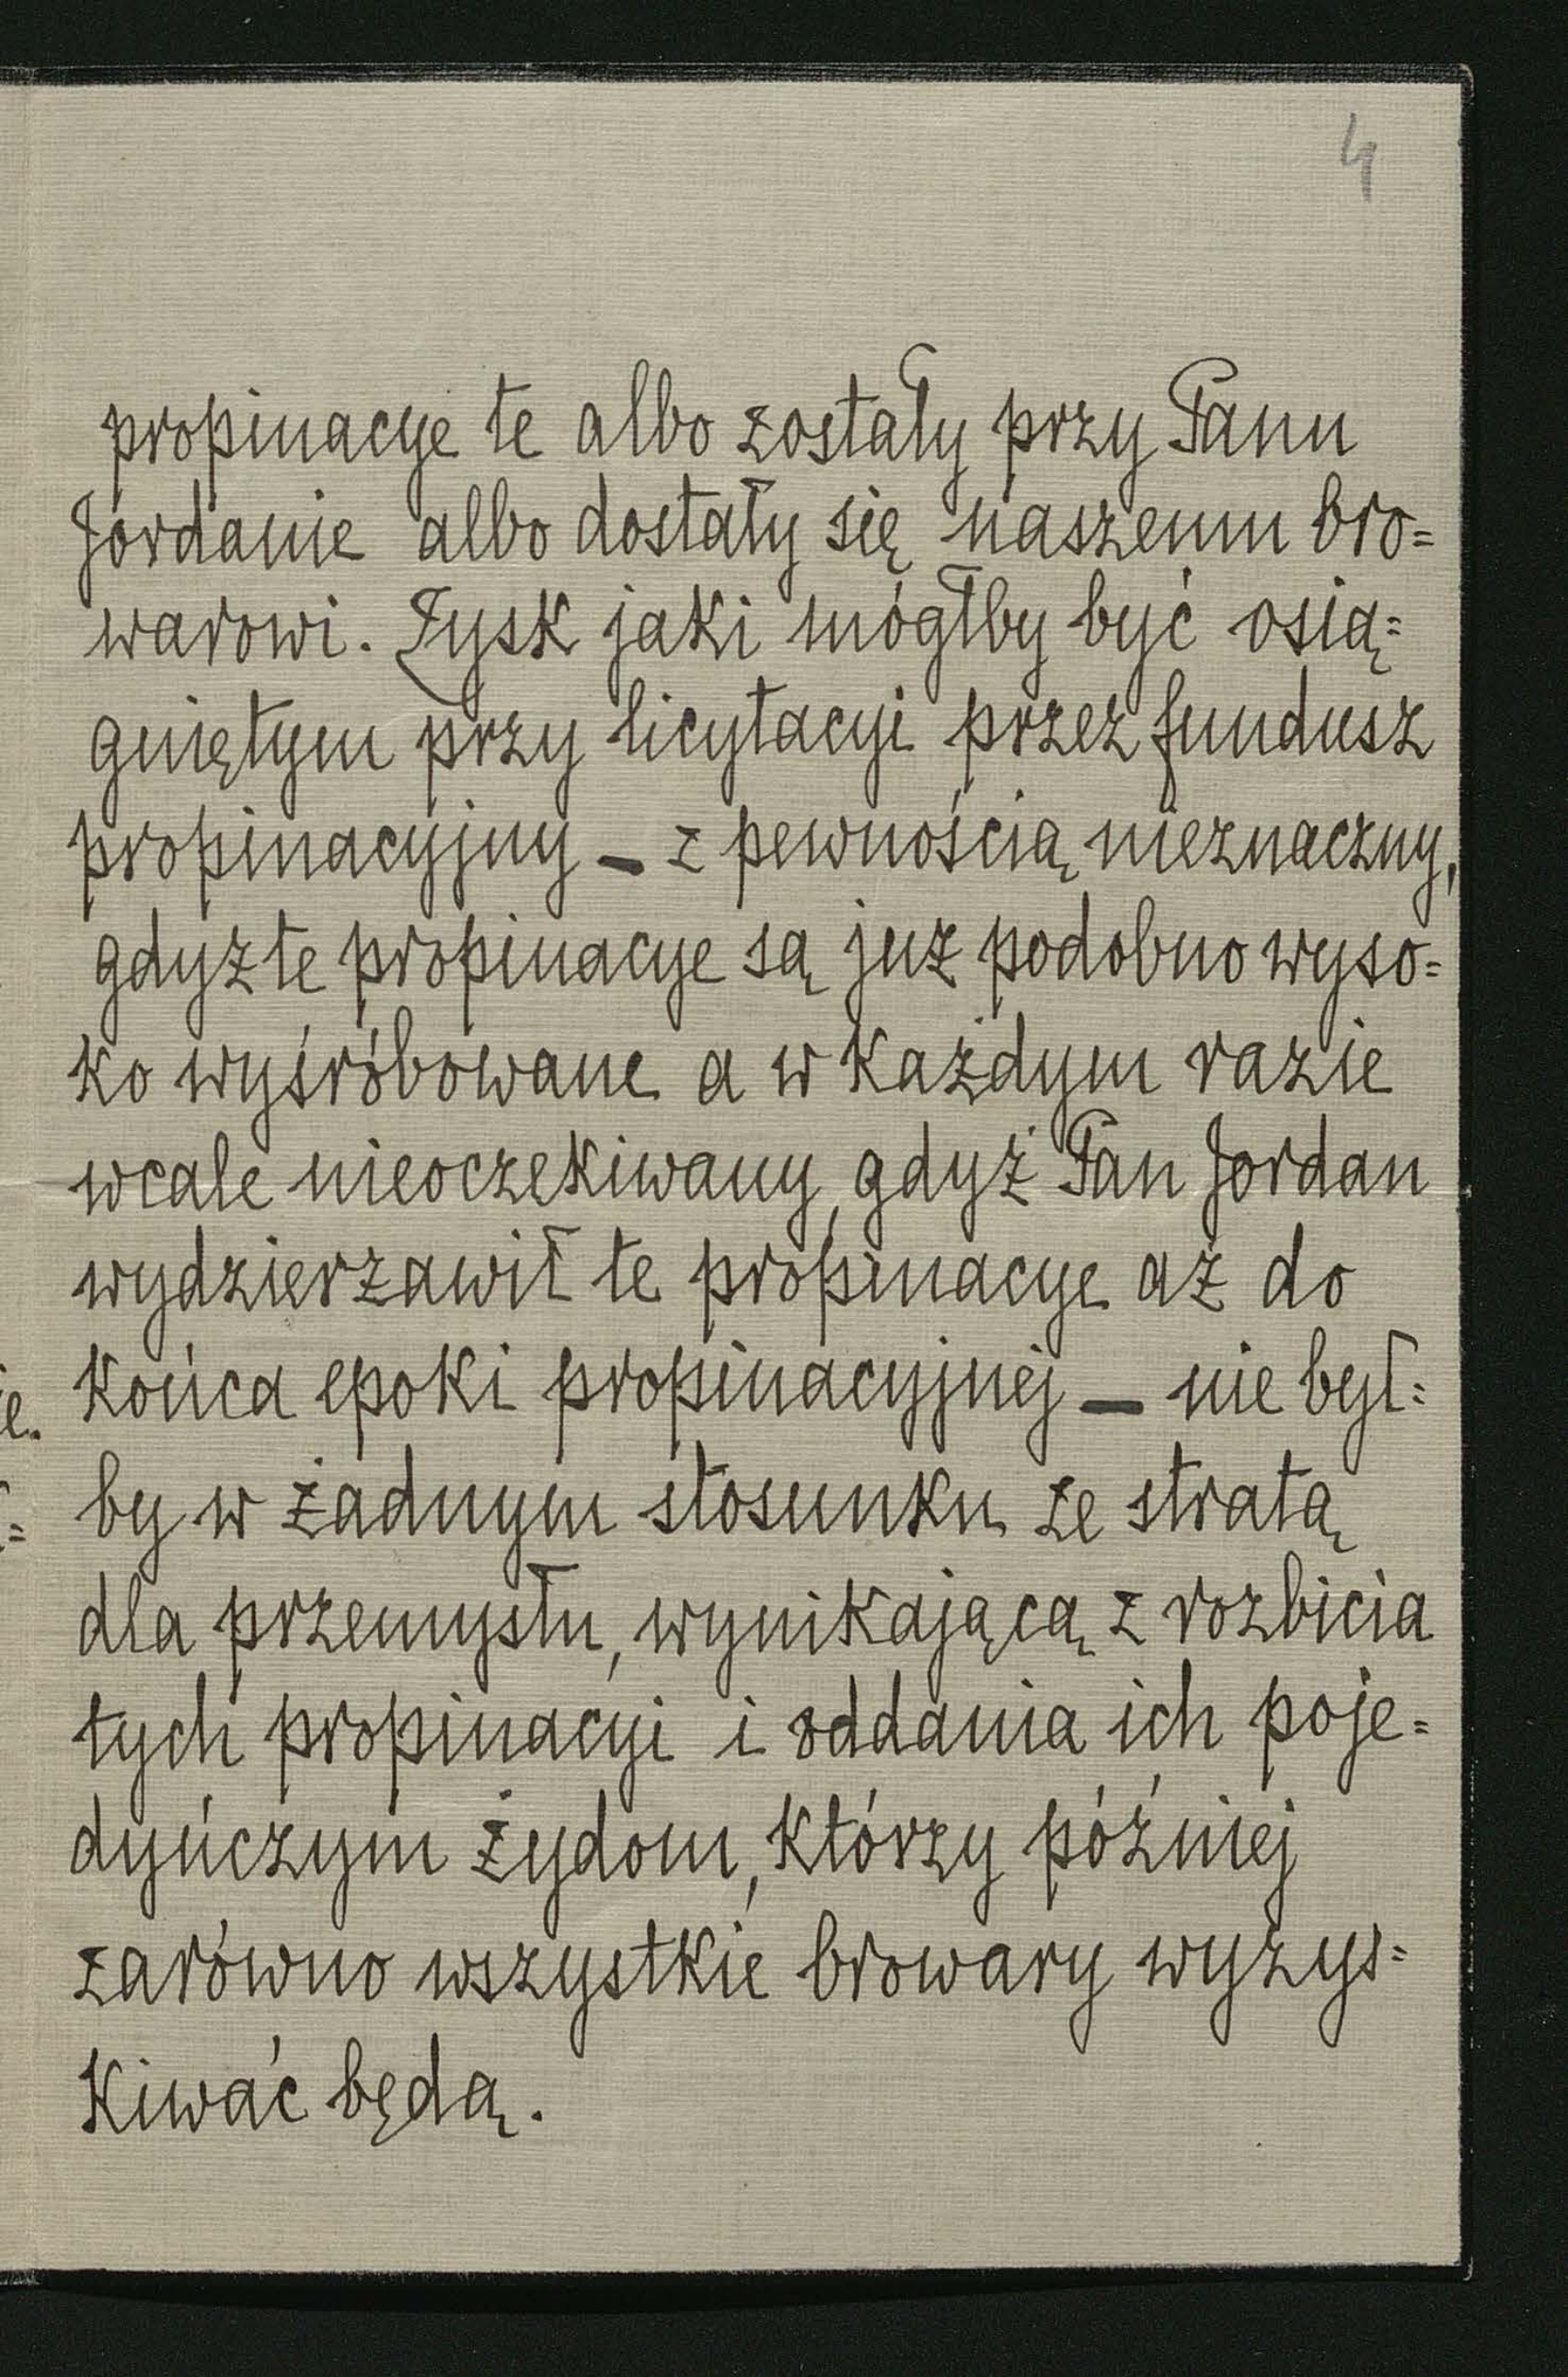 4
propinacye te albo zostały przy Panu
Jordanie albo dostały się naszemu bro=
warowi. Zysk jaki mógłby być osią=
gniętym przy licytacyi przez fundusz
propinacyjny – z pewnością nieznaczny,
gdyż te propinacye są już podobno wyso=
ko wyśróbowane a w każdym razie
wcale nieoczekiwany, gdyż Pan Jordan
wydzierżawił te propinacye aż do
końca epoki propinacyjnej – nie był=
by w żadnym stosunku ze stratą
dla przemysłu, wynikającą z rozbicia
tych propinacyi i oddania ich poje=
dyńczym Żydom, którzy później
zarówno wszystkie browary wyzys=
kiwać będą.